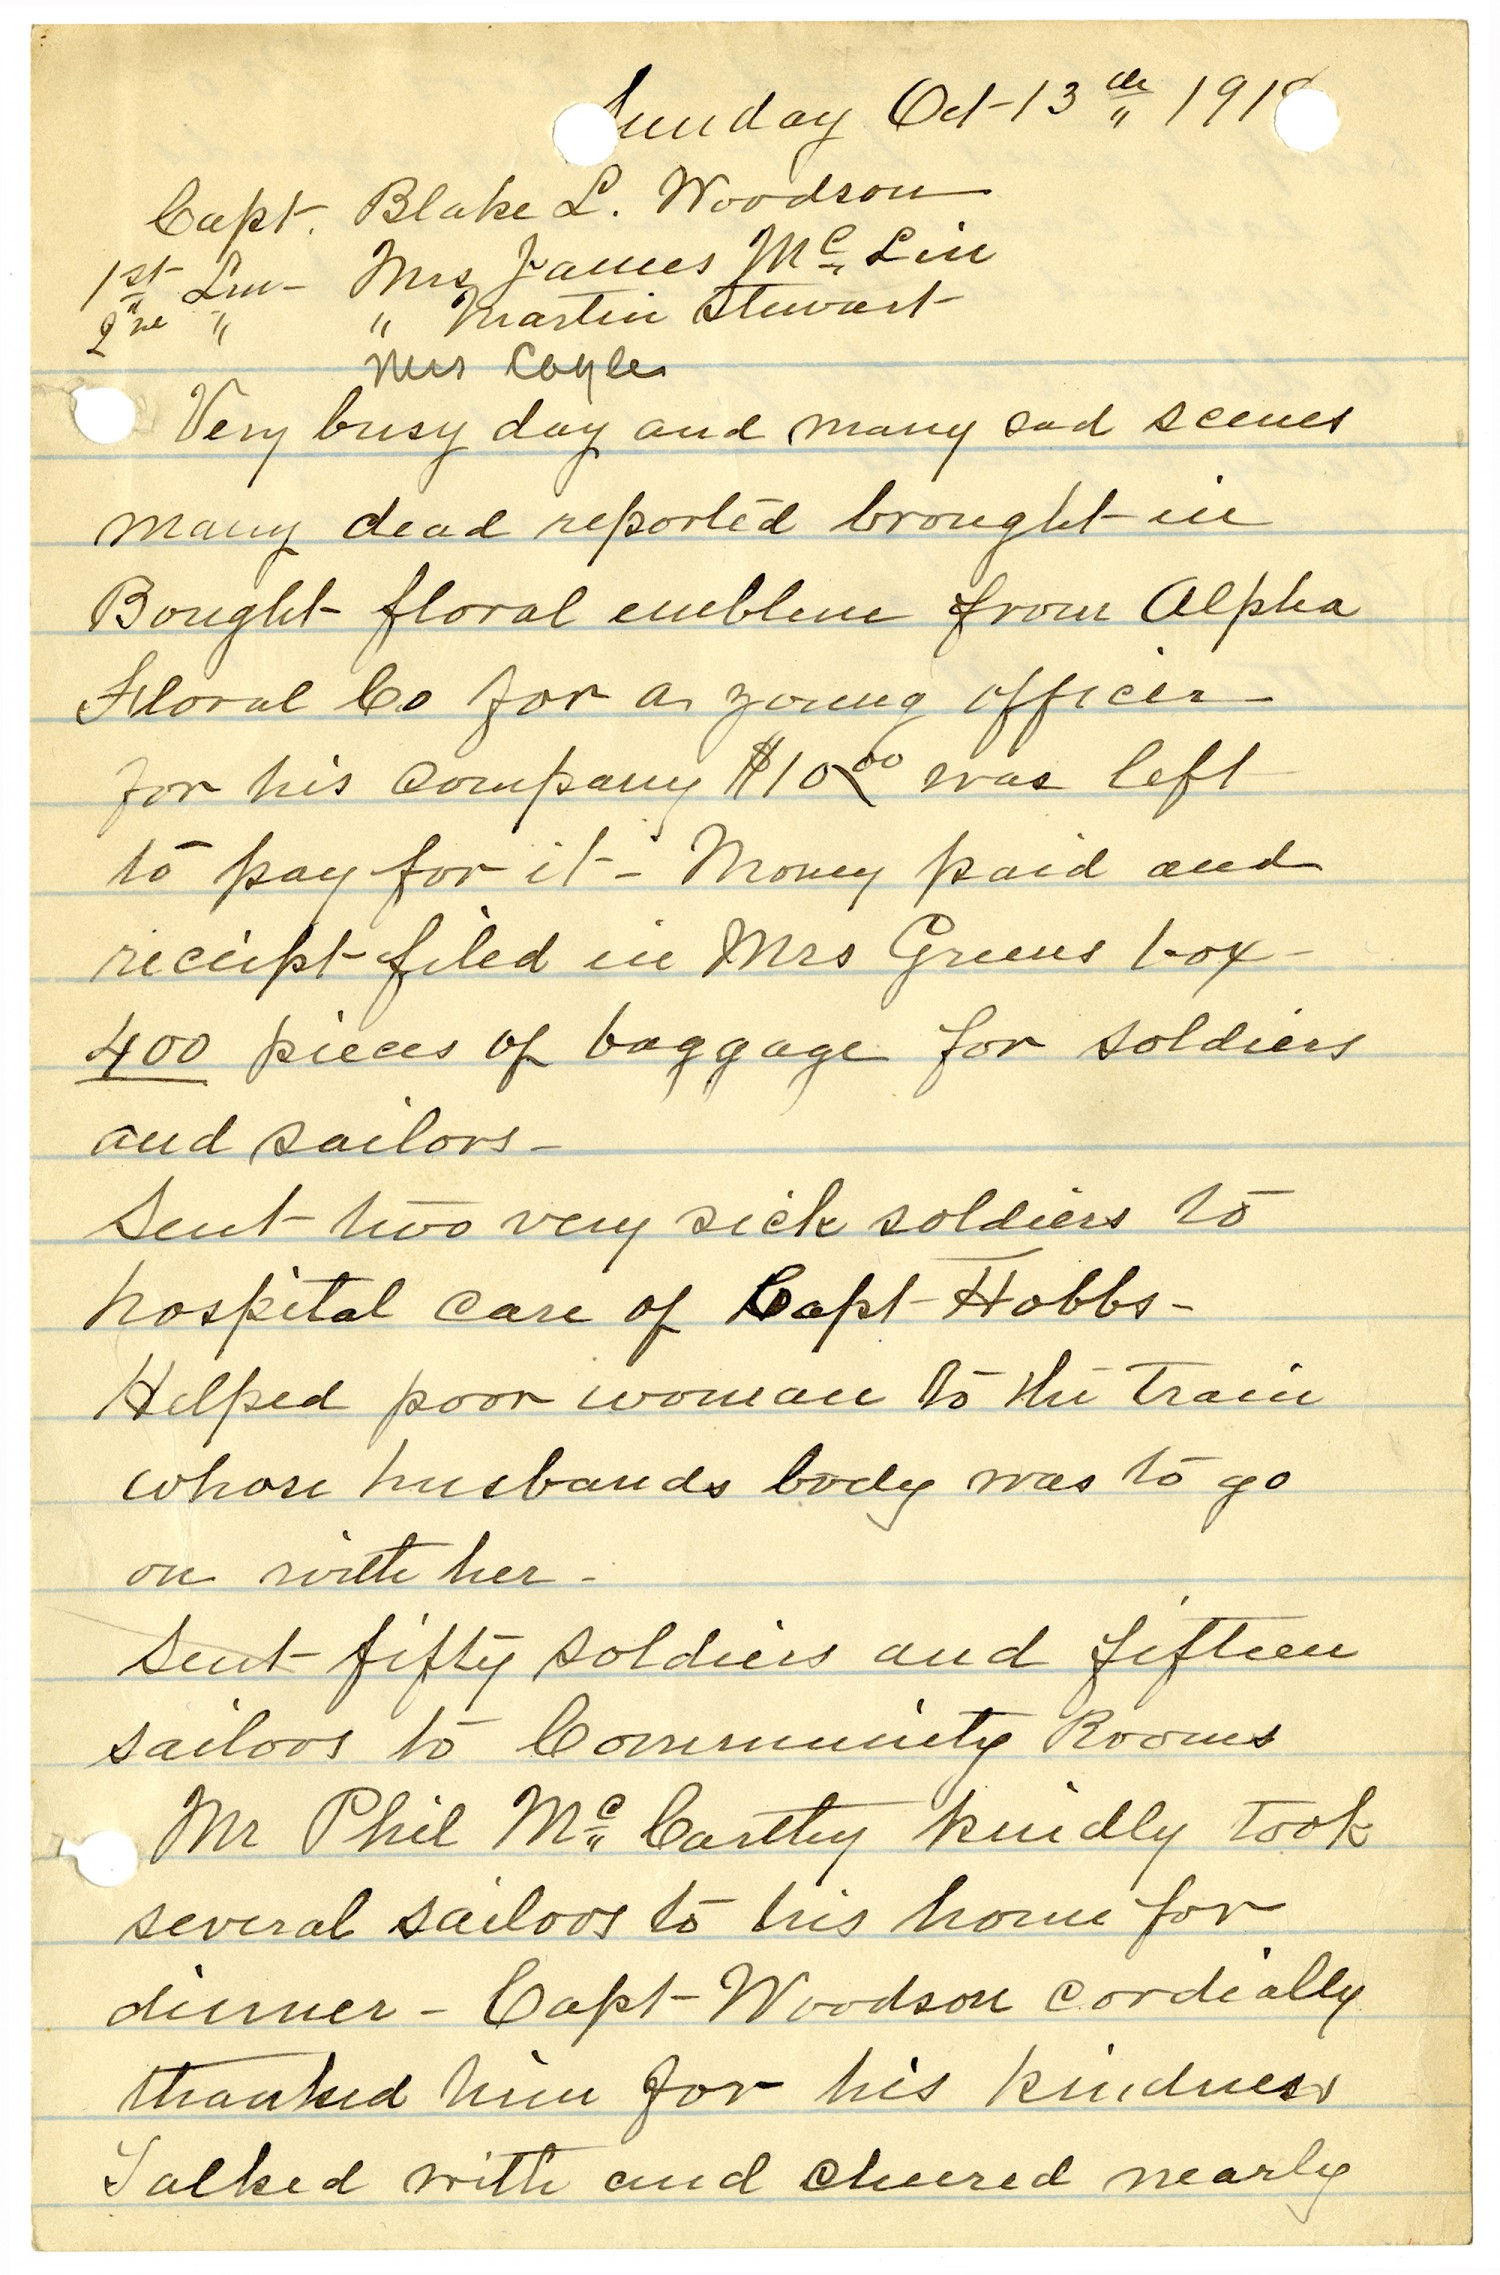 Sunday Oct-13th 1918
Capt. Blake L. Woodson
1st Lieu- Mrs James McLin
2nd " " Martin Stewart
Mrs Coyle
Very busy day and many sad scenes
many dead reported brought in
Bought floral emblem from Alpha
Floral Co for a young officer
for his company $10.00 was left
to pay for it - Money paid and
receipt filed in Mrs Greens box -
400 pieces of baggage for soldiers
and sailors -
Sent two very sick soldiers to
hospital care of Capt Hobbs -
Helped poor woman to the train
whose husbands body was to go
on with her -
Sent fifty soldiers and fifteen
sailors to Community Rooms
Mr Phil McCarthy kindly took
several sailors to his home for
dinner - Capt Woodson cordially
thanked him for his kindness
Talked with and cheered nearly